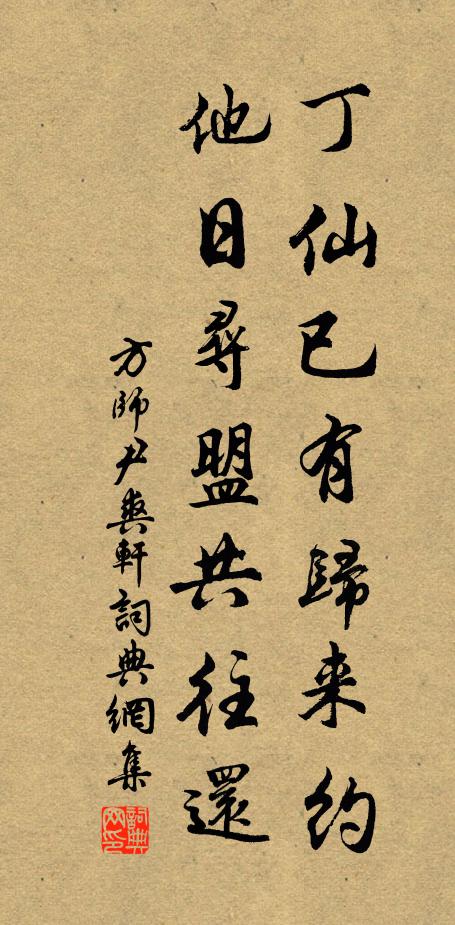 丁仙已有歸来約
他日尋盟共往還
方師尹爽軒詞典網集
詞典网印